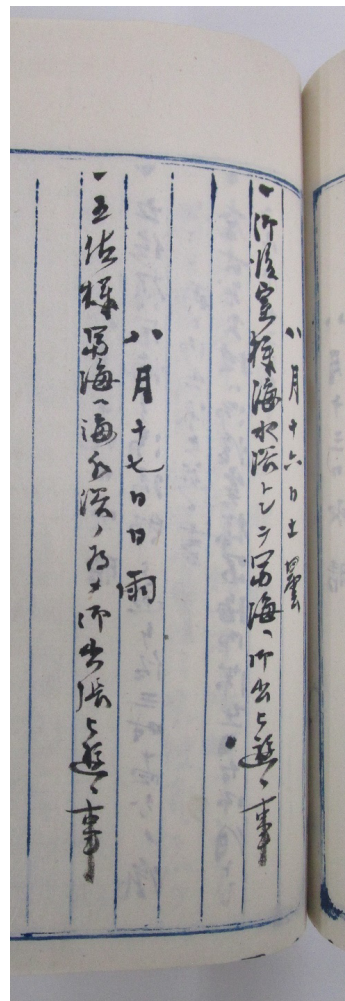 八月十六日土 曇
一御後室様海水浴トシテ富海ヘ御出被遊候事
八月十七日日 雨
一五佐様富海ヘ海水浴ノ為メ御出張被遊候事